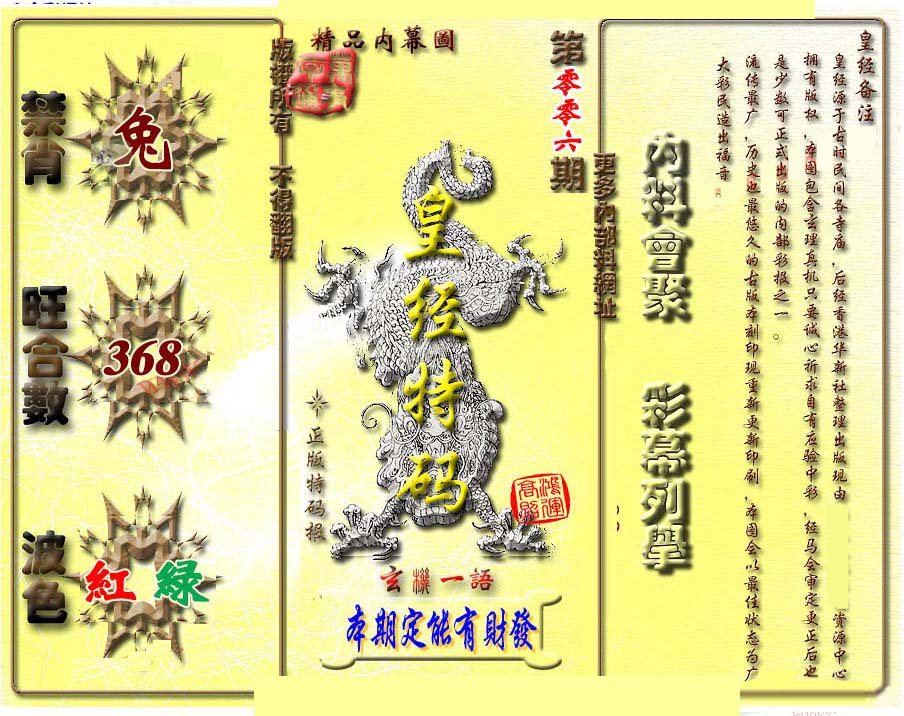 精品内幕圖
版權所有 不得翻版
第零零六期
更多內部料網址
禁肖
兔
旺合數
368
波色
紅 綠
皇经特码
正版特码报
鴻運高照
玄機一語
本期定能有財發
內料會聚
彩幕列舉
皇经备注
皇经源于古时民间各寺庙，后经香港华新社整理出版现由 资源中心
拥有版权，本图包含玄理真机只要诚心祈求自有应验中彩，经马会审定更正后也
是少数可正式出版的内部彩报之一。
流传最广，历史也最悠久的古版本刻印现重新更新印刷，本图会以最佳状态为广
大彩民造出福音